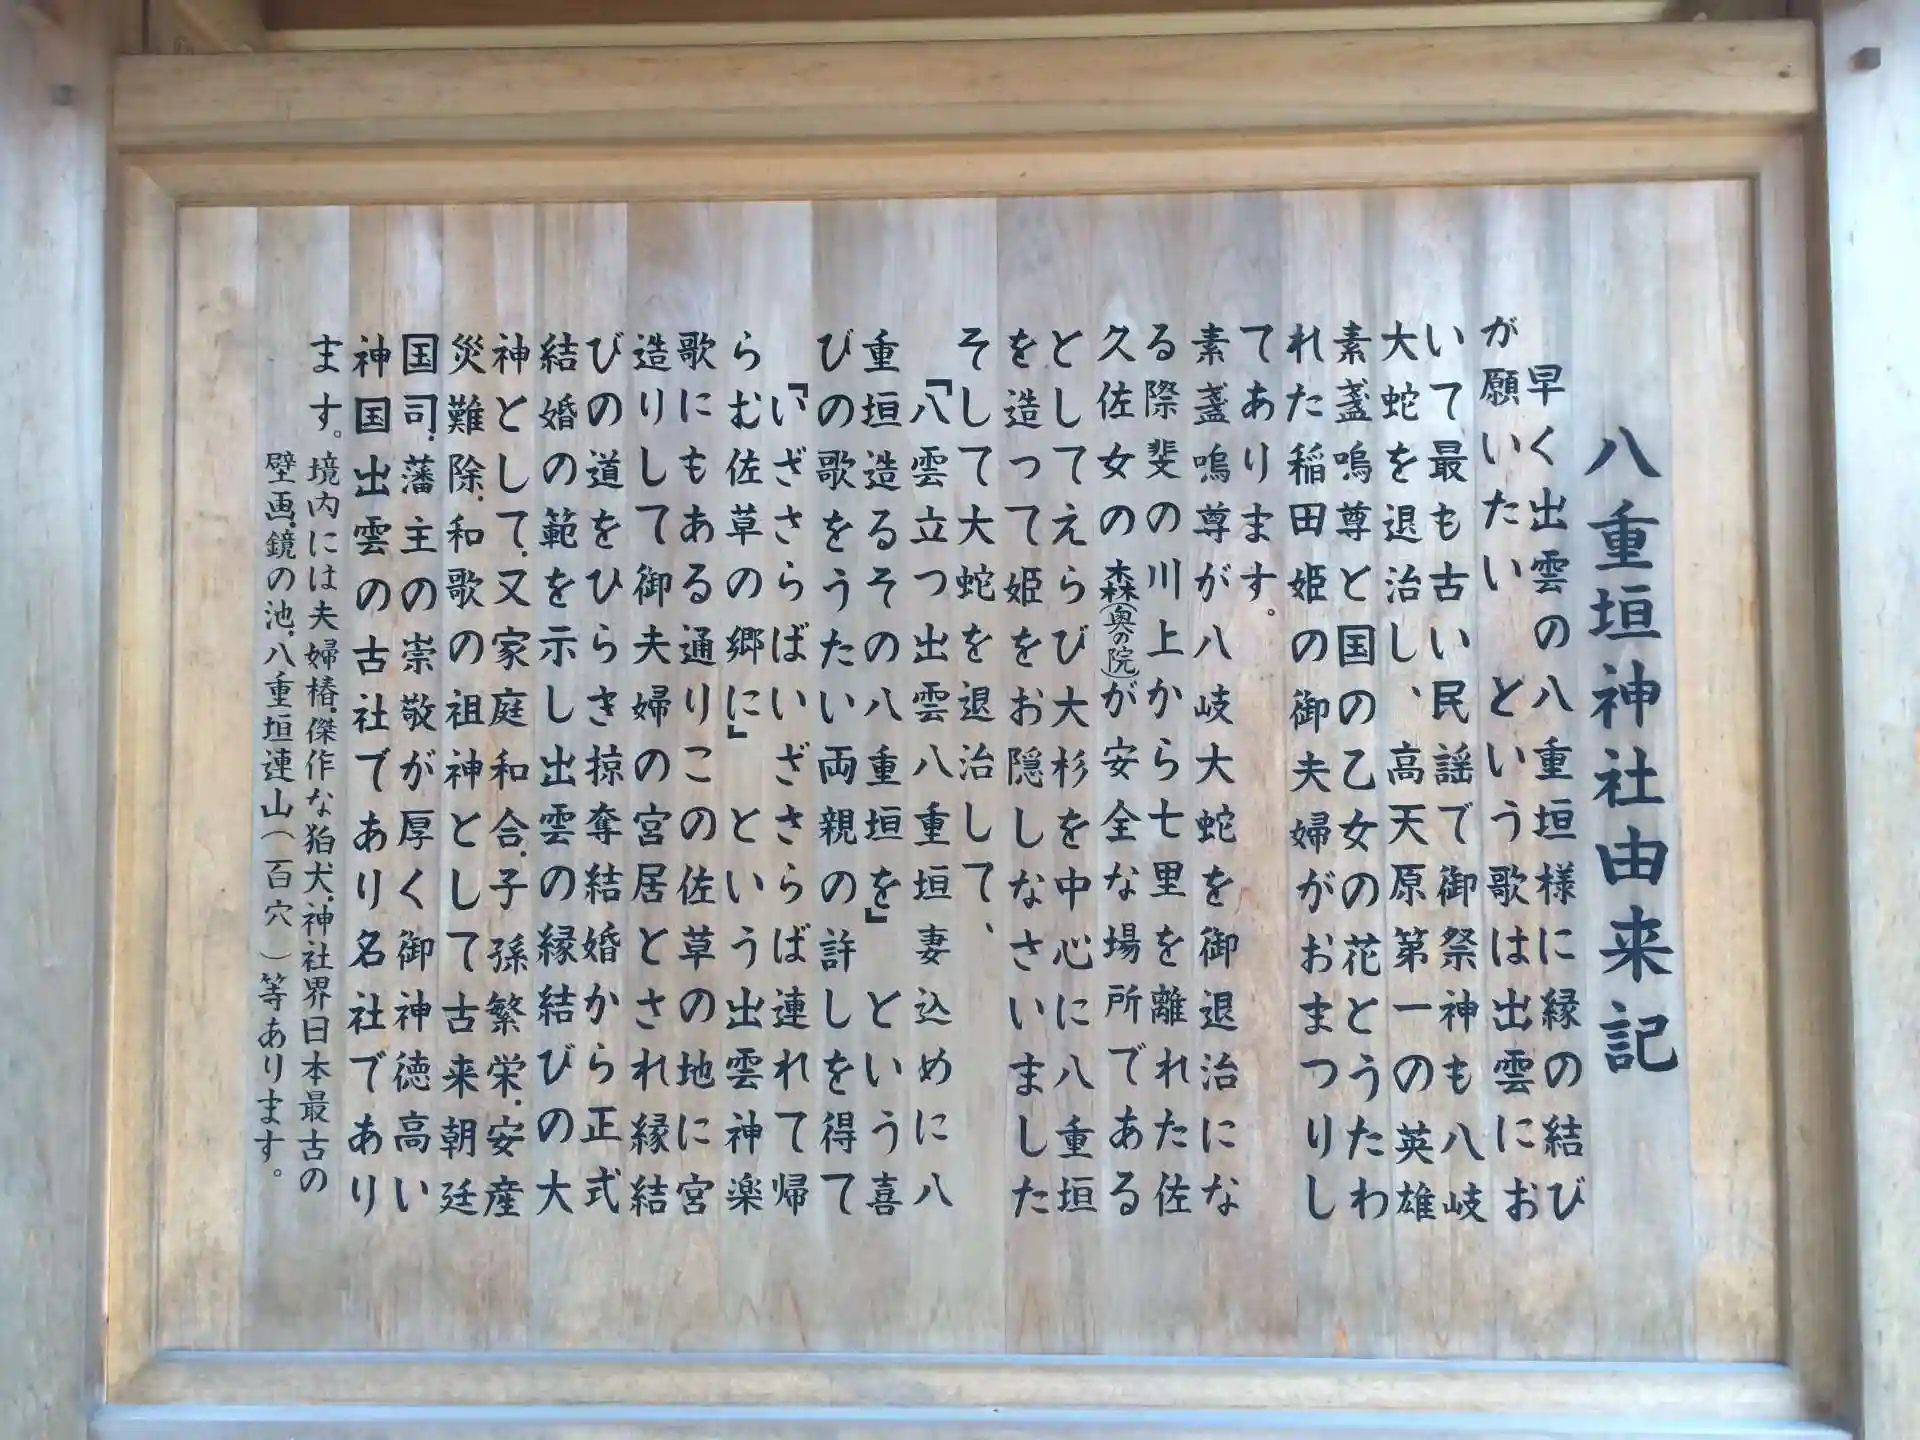 八重垣神社由来記
早く出雲の八重垣様に縁の結び
が願いたい　という歌は出雲にお
いて最も古い民謡で御祭神も八岐
大蛇を退治し、高天原第一の英雄
素盞嗚尊と国の乙女の花とうたわ
れた稲田姫の御夫婦がおまつりし
てあります。
素盞嗚尊が八岐大蛇を御退治にな
る際斐の川上から七里を離れた佐
久佐女の森(奥の院)が安全な場所である
としてえらび大杉を中心に八重垣
を造って姫をお隠しなさいました
そして大蛇を退治して、
「八雲立つ出雲八重垣妻込めに八
重垣造るその八重垣を」　という喜
びの歌をうたい両親の許しを得て
「いざさらばいざさらば連れて帰
らむ佐草の郷に」　という出雲神楽
歌にもある通りこの佐草の地に宮
造りして御夫婦の宮居とされ縁結
びの道をひらき掠奪結婚から正式
結婚の範を示し出雲の縁結びの大
神として、又家庭和合、子孫繁栄、安産
災難除、和歌の祖神として古来朝廷
国司、藩主の崇敬が厚く御神徳高い
神国出雲の古社であり名社であり
ます。境内には夫婦椿、傑作な狛犬、神社界日本最古の
壁画、鏡の池、八重垣連山(百穴)等あります。